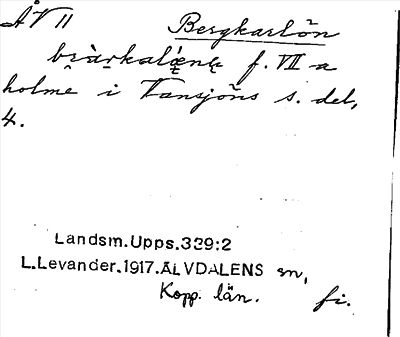 ÅV 11 Bergkarlön
f. VII a
holme i Vansjöns s. del,
4.
Landsm.Upps.339:2
L.Levander.1917.ÄLVDALENS sn,
Kopp. län. fi.